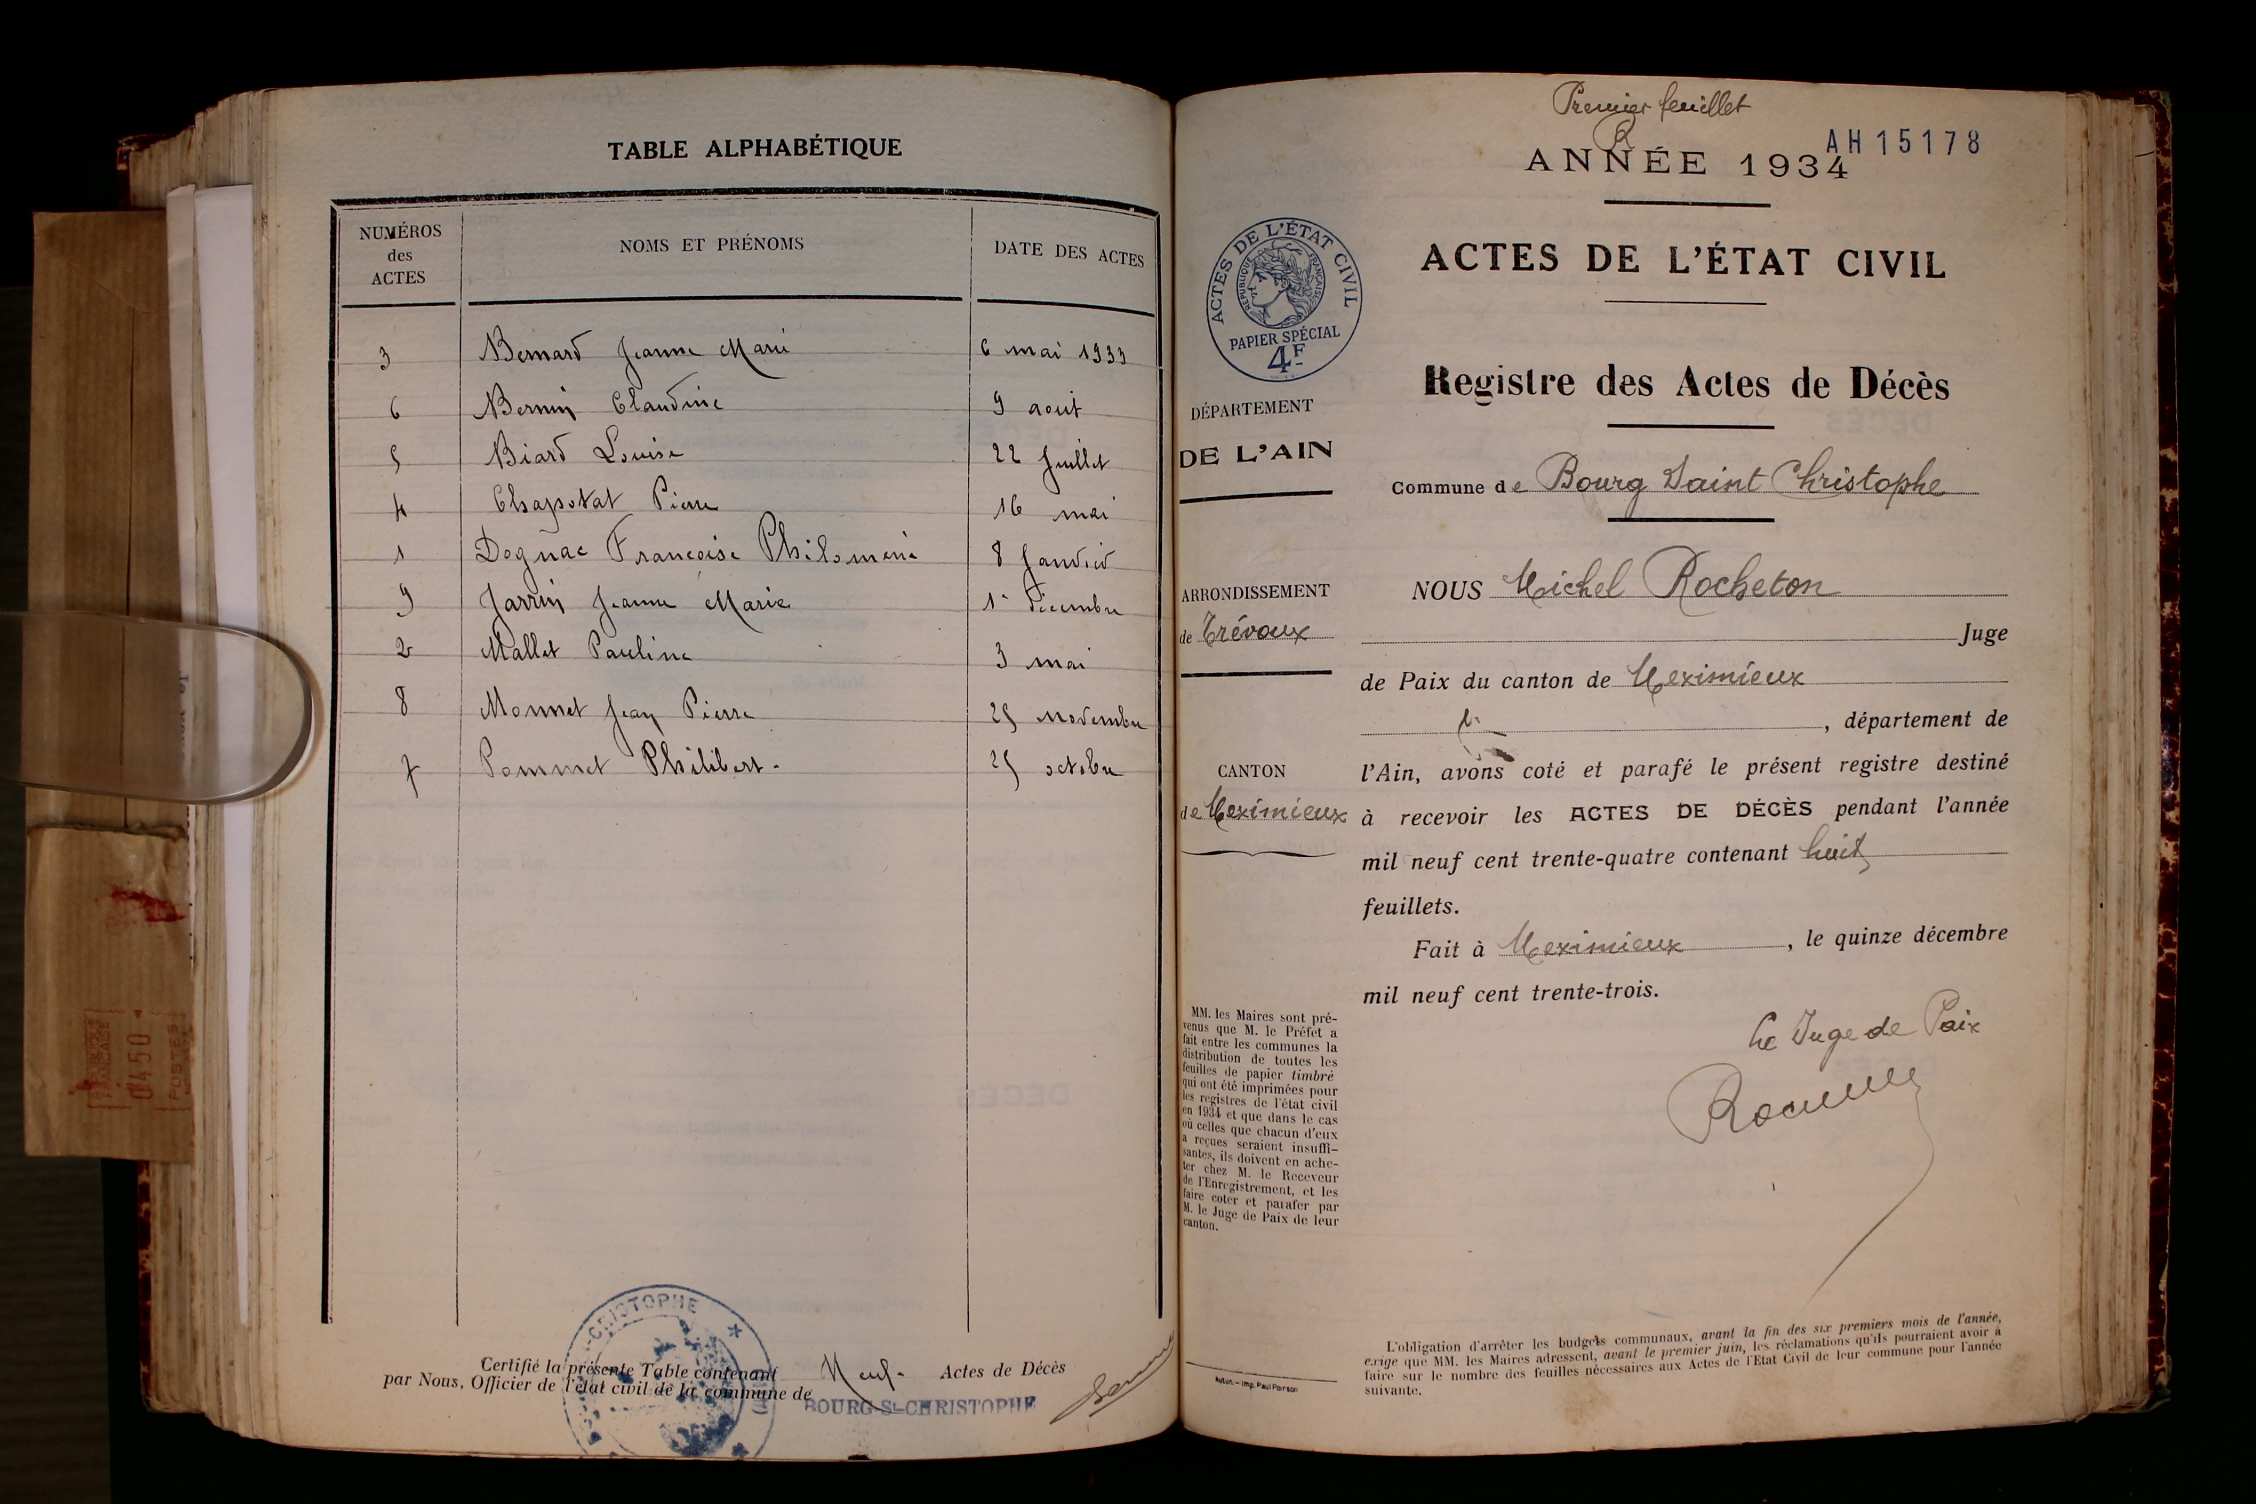 TABLE ALPHABÉTIQUE
NUMÉROS des ACTES NOMS ET PRÉNOMS DATE DES ACTES
3 Bernard Jeanne Marie 6 mai 1933
6 Bernin Claudine 9 aout
5 Biard Louise 22 Juillet
4 Chapotat Pierre 16 mai
1 Françoise Philomène 8 Janvier
9 Jarrin Jeanne Marie 1er décembre
2 Mallet Pauline 3 mai
8 Monnet Jean Pierre 25 novembre
7 Pommet Philibert. 25 octobre
Certifié la présente Table contenant Neuf. Actes de Décès
par Nous, Officier de l'état civil de la commune de BOURG-St-CHRISTOPHE
Premier feuillet
R
AH15178
ANNÉE 1934
ACTES DE L'ÉTAT CIVIL
RÉPUBLIQUE FRANÇAISE
PAPIER SPÉCIAL
4F
ACTES DE L'ÉTAT CIVIL
Registre des Actes de Décès
DÉPARTEMENT
DE L'AIN
Commune de Bourg Saint Christophe
ARRONDISSEMENT
de Trévoux
CANTON
de Meximieux
NOUS Michel Rocheton
Juge
de Paix du canton de Meximieux
, département de
l'Ain, avons coté et parafé le présent registre destiné
à recevoir les ACTES DE DÉCÈS pendant l'année
mil neuf cent trente-quatre contenant huit
feuillets.
Fait à Meximieux, le quinze décembre
mil neuf cent trente-trois.
Le Juge de Paix
MM. les Maires sont pré-
venus que M. le Préfet a
fait entre les communes la
distribution de toutes les
feuilles de papier timbré
qui ont été imprimées pour
les registres de l'état civil
en 1934 et que dans le cas
où celles que chacun d'eux
a reçues seraient insuffi-
santes, ils doivent en ache-
ter chez M. le Receveur
de l'Enregistrement, et les
faire coter et parafer par
M. le Juge de Paix de leur
canton.
L'obligation d'arrêter les budgets communaux, avant la fin des six premiers mois de l'année,
exige que MM. les Maires adressent, avant le premier juin, les réclamations qu'ils pourraient avoir à
faire sur le nombre des feuilles nécessaires aux Actes de l'Etat Civil de leur commune pour l'année
suivante.
0450
POSTES